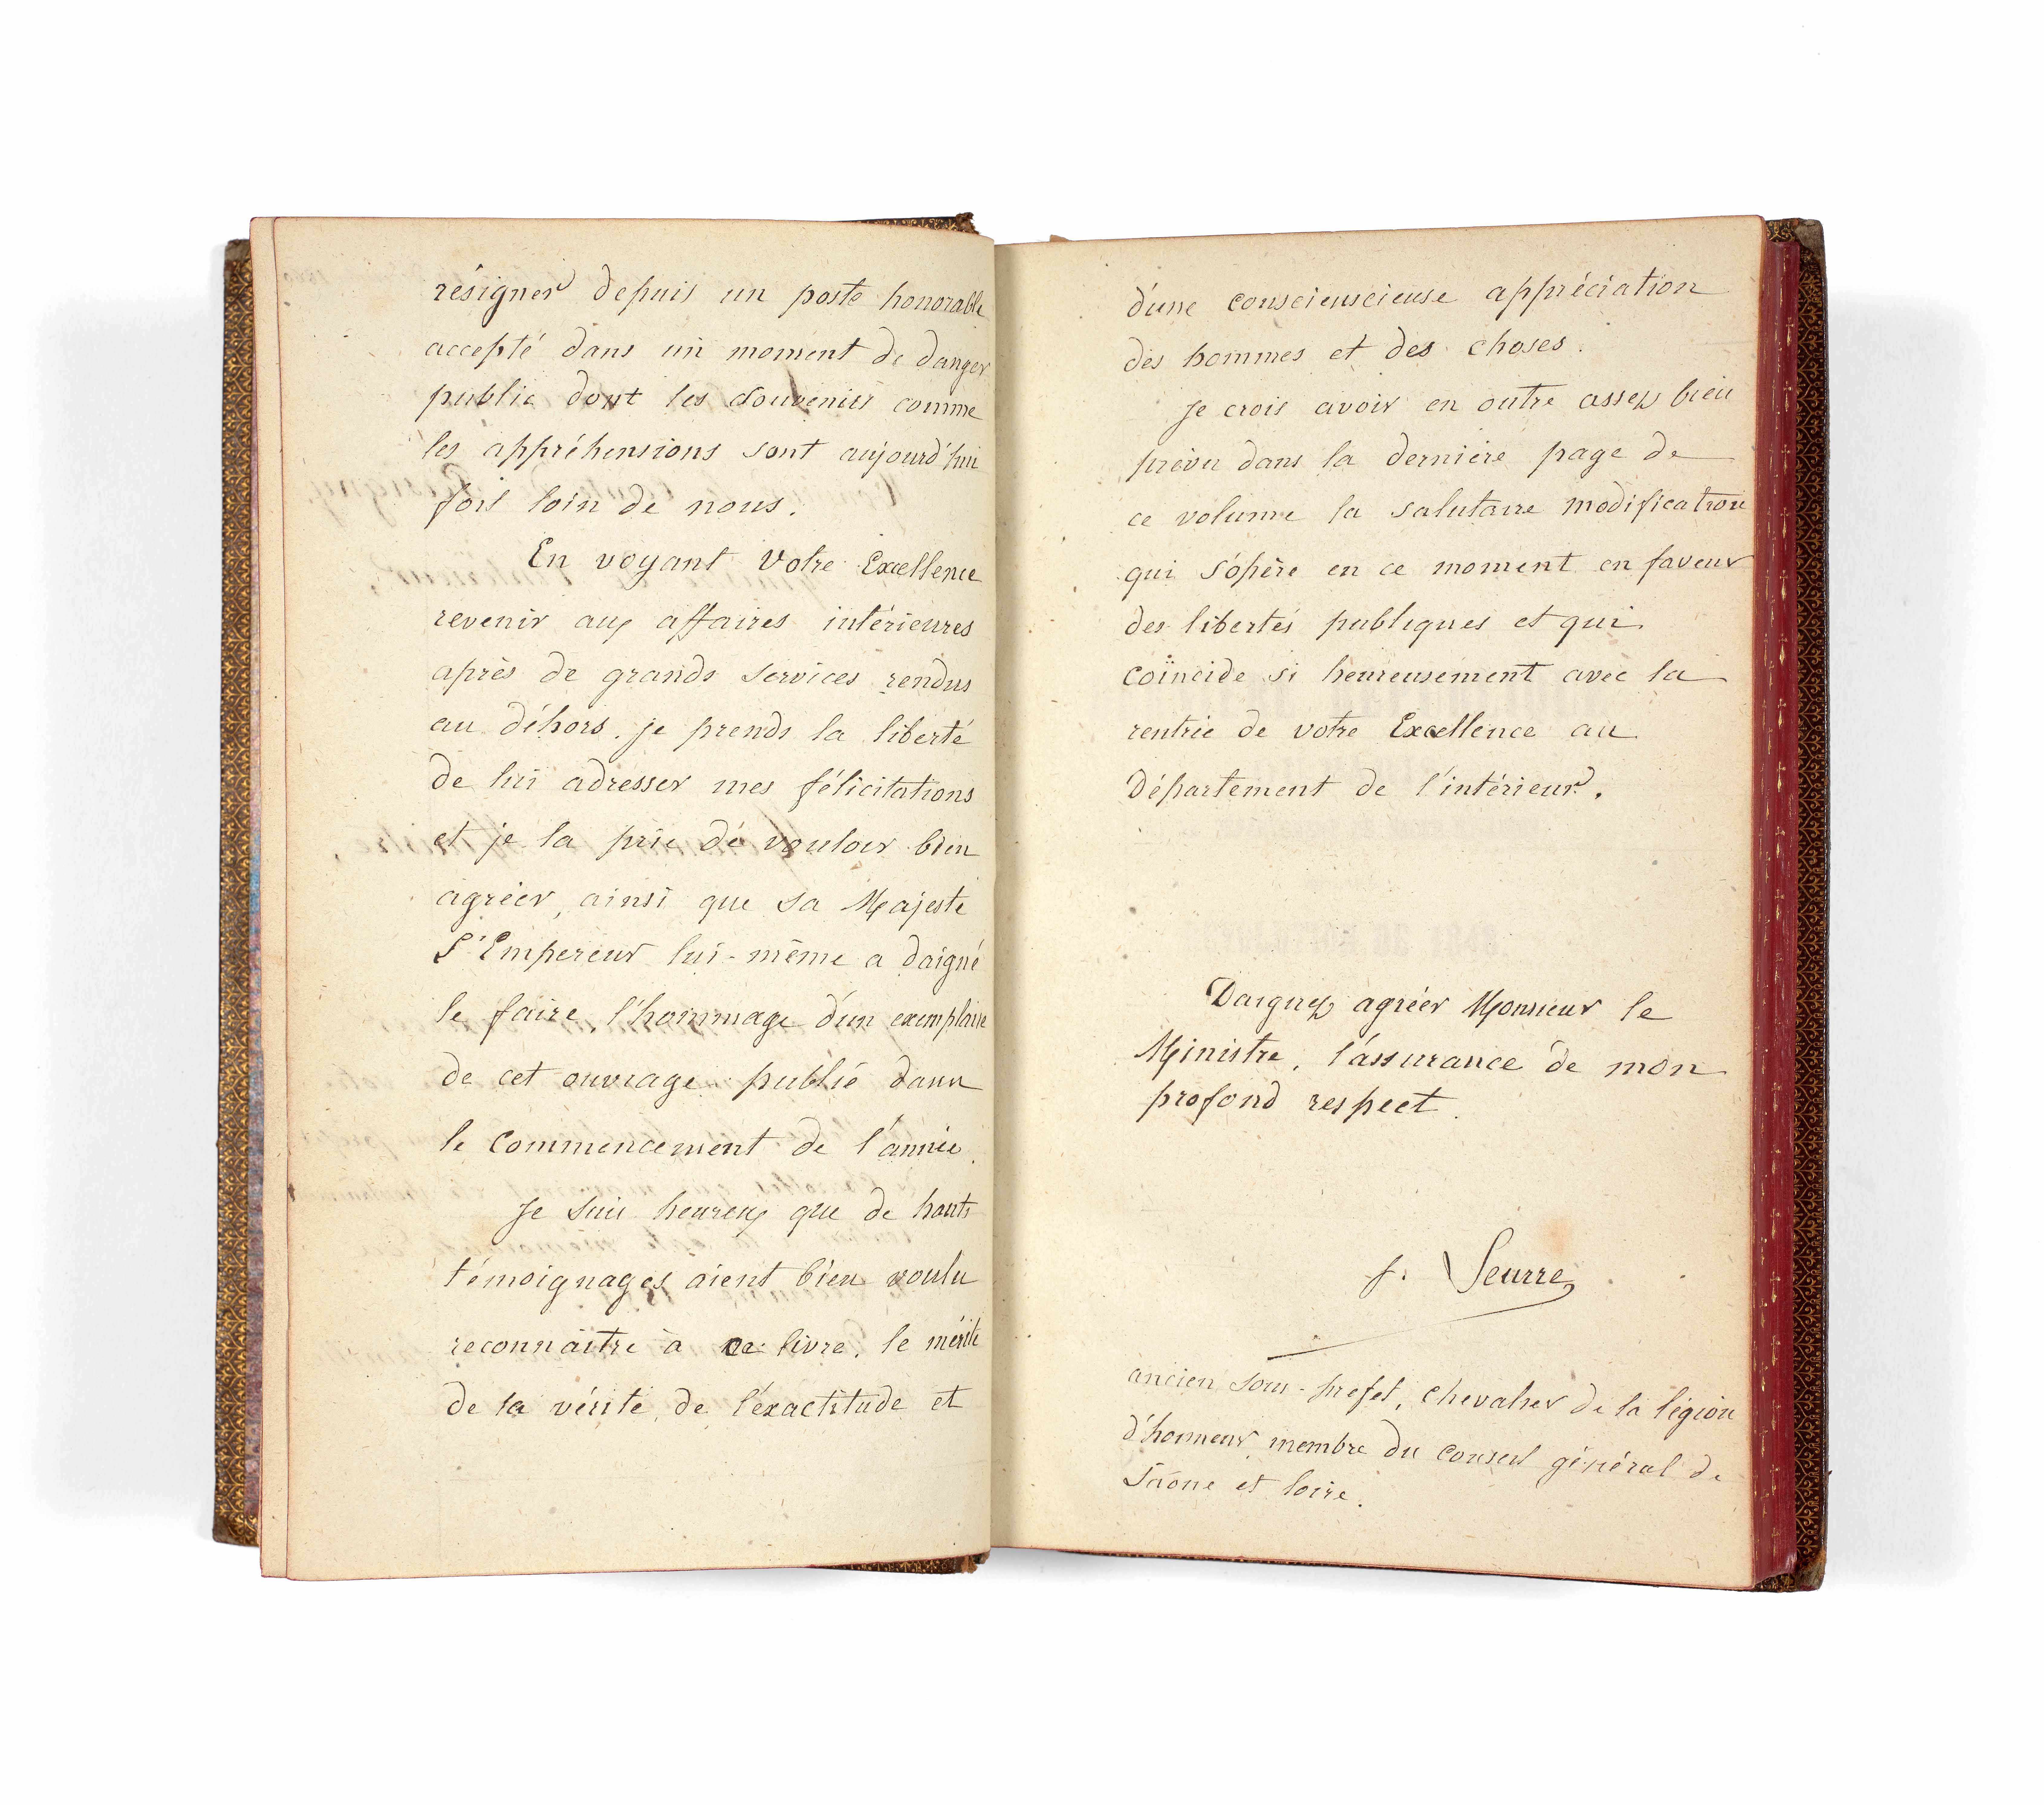 résigner depuis un poste honorable
accepté dans un moment de danger
public dont les souvenirs comme
les appréhensions sont aujourd'hui
fort loin de nous.
En voyant Votre Excellence
revenir aux affaires intérieures
après de grands services rendus
au déhors, je prends la liberté
de lui adresser mes félicitations
et je la prie de vouloir bien
agréer, ainsi que sa Majesté
L'Empereur lui-même a daigné
le faire, l'hommage d'un exemplaire
de cet ouvrage publié dans
le commencement de l'année.
Je suis heureux que de hauts
témoignages aient bien voulu
reconnaitre à ce livre, le mérite
de la vérité, de l'exactitude et
d'une consciensciеuse appréciation
des hommes et des choses.
Je crois avoir en outre assez bien
prévu dans la dernière page de
ce volume la salutaire modification
qui s'opère en ce moment en faveur
des libertés publiques et qui
coïncide si heureusement avec la
rentrée de votre Excellence au
Département de l'intérieur.
Daignez agréer Monsieur le
Ministre, l'assurance de mon
profond respect.
f. Seurre
ancien sous-préfet, chevalier de la légion
d'honneur, membre du conseil général de
Saône et loire.